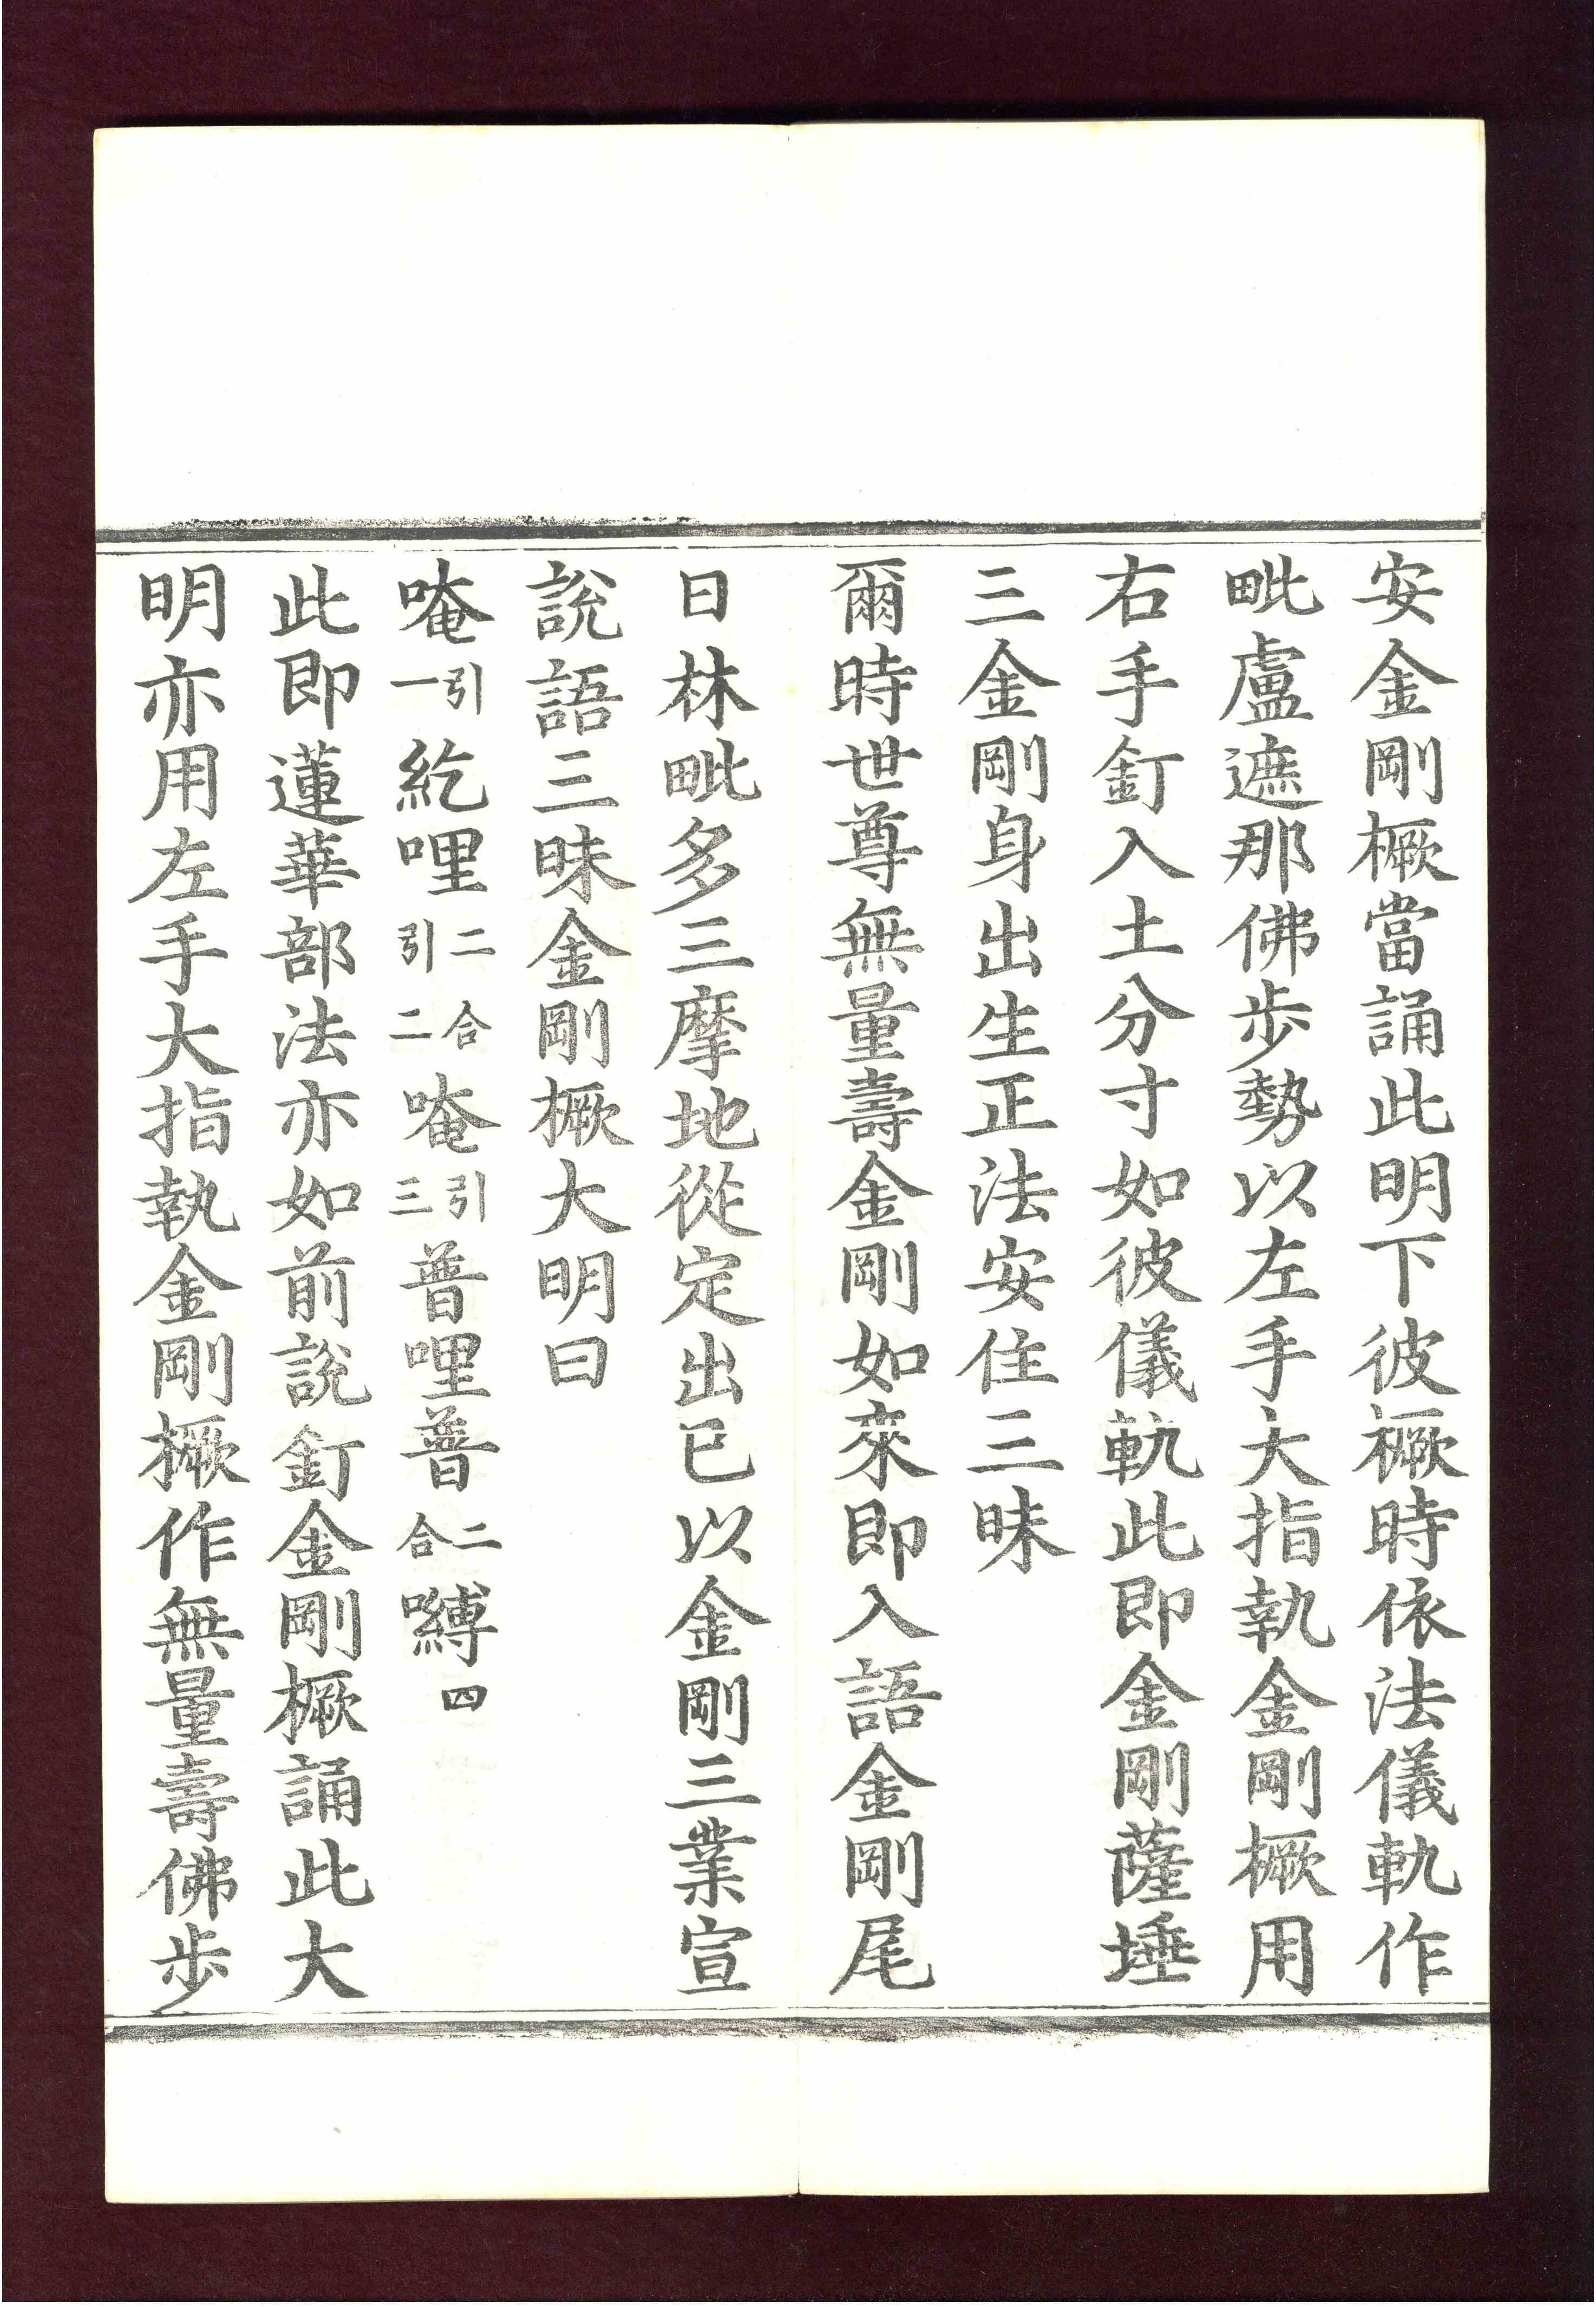 安金剛橛當誦此明下彼橛時依法儀軌作
毗盧遮那佛步勢以左手大指執金剛橛用
右手釘入土分寸如彼儀軌此即金剛薩埵
三金剛身出生正法安住三昧
爾時世尊無量壽金剛如來即入語金剛尾
日林毗多三摩地從定出已以金剛三業宣
說語三昧金剛橛大明曰
唵引一紇哩二合引二唵引三普哩普二合嚩四
此即蓮華部法亦如前說釘金剛橛誦此大
明亦用左手大指執金剛橛作無量壽佛步